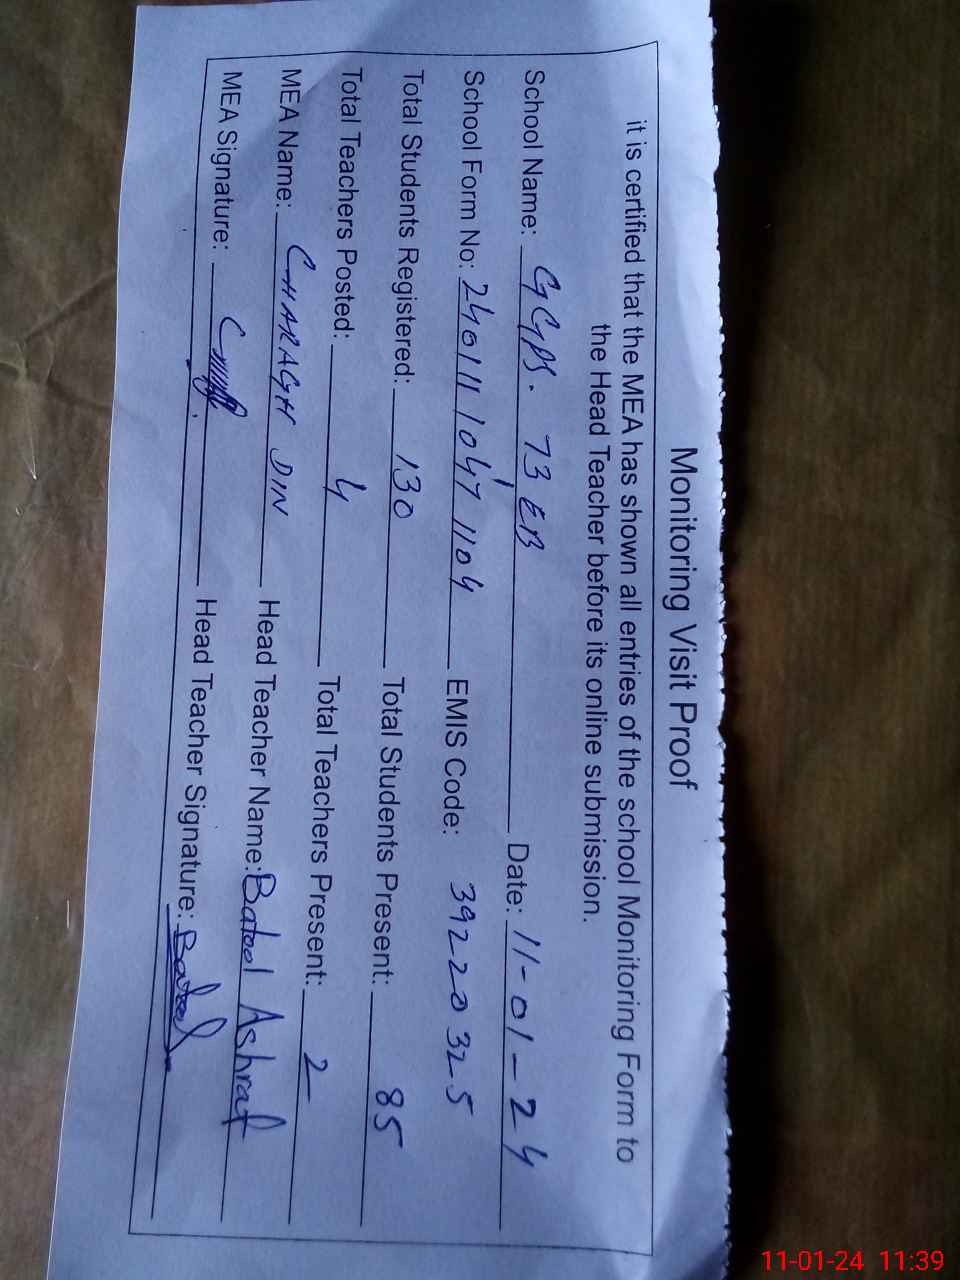 Monitoring Visit Proof
it is certified that the MEA has shown all entries of the school Monitoring Form to
the Head Teacher before its online submission.
School Name: GGPS. 73 EB Date: 11-01-24
School Form No: 240111 1047 1104 EMIS Code: 39220325
Total Students Registered: 130 Total Students Present: 85
Total Teachers Posted: 4 Total Teachers Present: 2
MEA Name: CHARAGH DIN Head Teacher Name: Batool Ashraf
MEA Signature: Head Teacher Signature: Batool
11-01-24 11:39